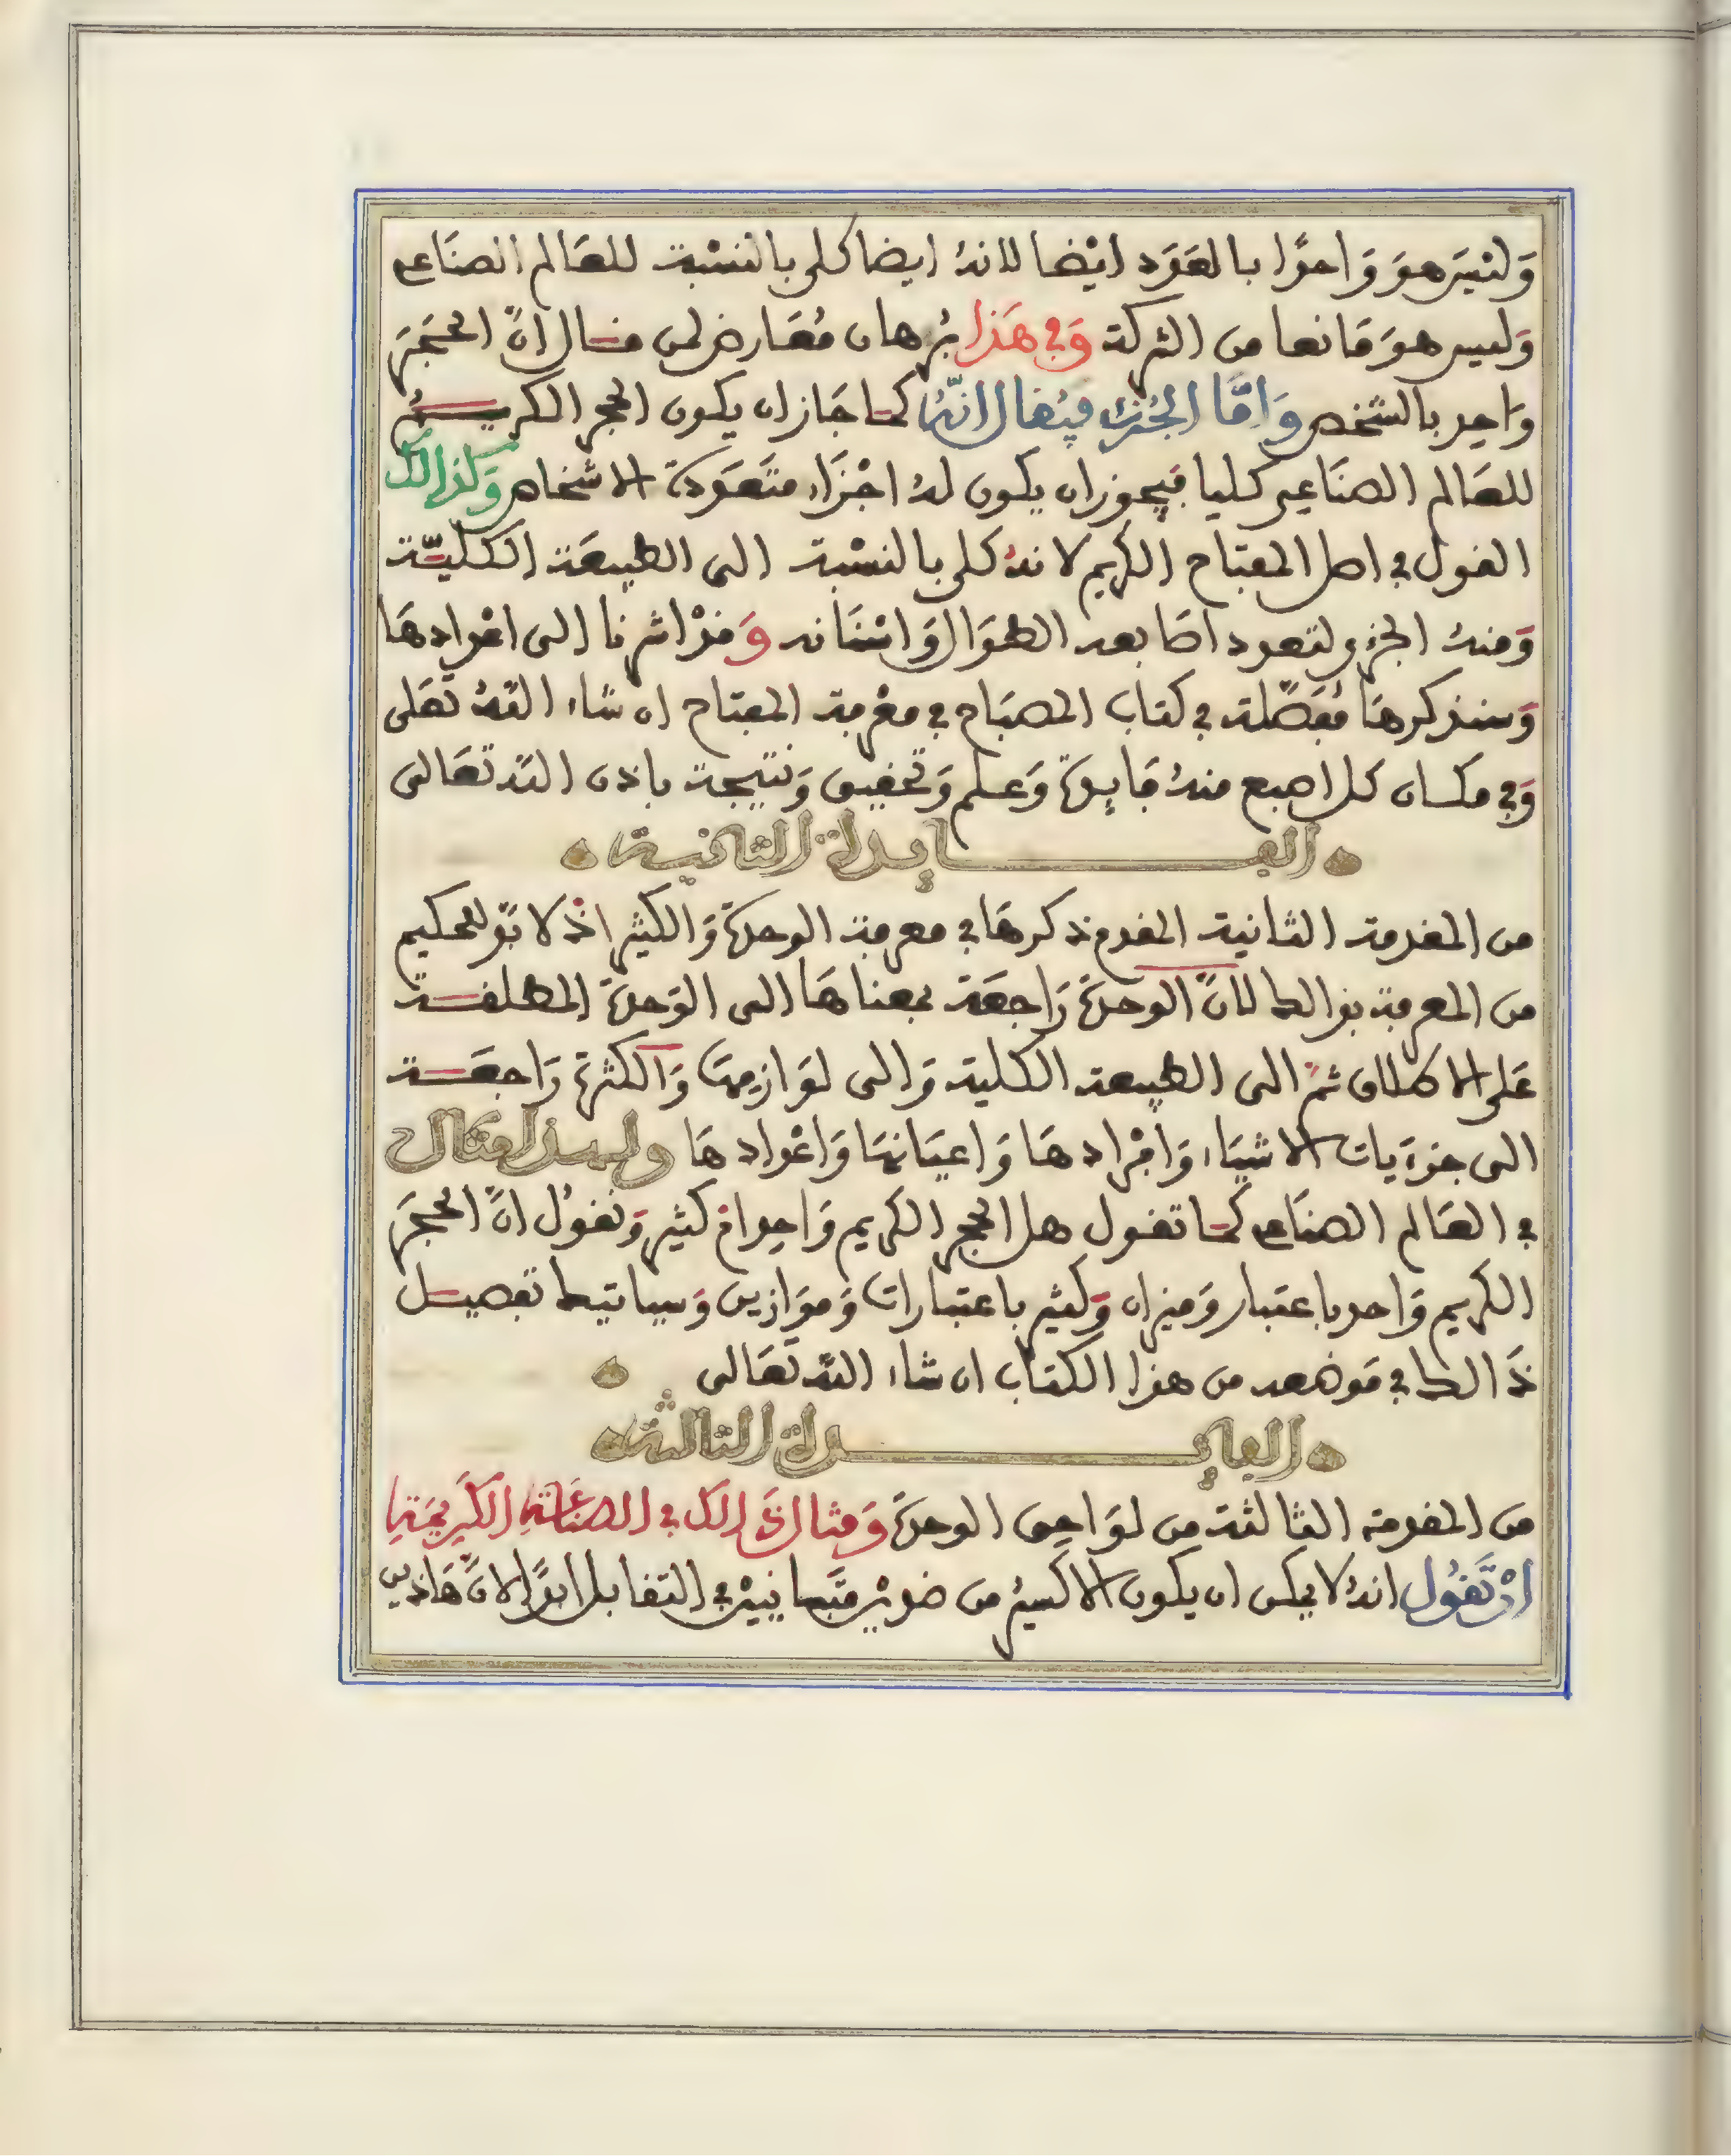 وَلَيْسَ هوَ وَاحدًا بالعَدَد ايْضا لانهُ ايضا كلي بالنسْبة للعَالم الصنَاعي
وَليس هوَ مَانعا من الشركة وَفي هَذا بُرهان مُعَارض لمن قال انّ الحجَرَ
وَاحد بالشخص وَامّا الجُزئي فيُقال انّهُ كما جَاز ان يكون الحجر الكريم
للعَالم الصنَاعي كليا فيجوز ان يكون لهُ اجْزَاء متعَددة الاشخاص وَكذالك
القول في اصل المفتاح الكريم لانهُ كلي بالنسْبة الى الطبيعَة الكليّة
وَمنهُ الجزءي لتعدد اصَابعه الطوَال وَاسْنَانه وَقدْ اشرنا الى اعْدادهَا
وَسنذكرهَا مُفصّلة في كتاب المصبَاح في معْرفة المفتاح ان شاء اللهُ تعَلى
وَفي مكان كل اصبع منهُ فَايدة وَعلم وَتحقيق وَنتيجة باذن الله تعَالى
الفايدة الثانية
من المقدمة الثانية المقدم ذكرهَا في معرفة الوحدة وَالكثير اذْ لا بدّ للحكيم
من المعرفة بذالك لانّ الوحدة رَاجعَة بمعناهَا الى الوَحدة المطلقة
عَلى الاطلاق ثمّ الى الطبيعة الكلية وَالى لوَازمهَا وَالكثرة رَاجعَة
الى جزءيات الاشيَاء وَافْرادهَا وَاعيَانهَا وَاعْدادهَا ولهذا مثال
في العَالم الصنَاعي كما تقول هل الحجر الكريم وَاحد امْ كثير وَنقولُ انّ الحجرَ
الكريم وَاحد باعتبار وَميزان وَكثير باعتبارات وَموَازين وَسياتيك تفصيل
ذَالك في مَوضعه من هذا الكتاب ان شاء الله تعَالى
الفايدة الثالثة
من المقدمة الثالثة من لوَاحق الوحدة وَمثال ذَالك في الصنَاعَة الكَريمَة
انْ تَقُول انهُ لا يمكن ان يكون الاكسيرُ من ضدينْ متَباينيْن في التقابل ابدًا لانّ هَاذين